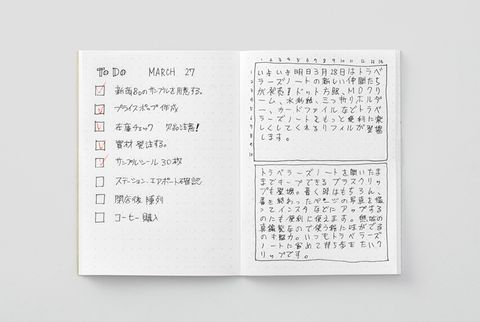 To Do MARCH 27
新商品のサンプルを用意する。
プライスポップ作成
在庫チェック 欠品注意!
資材発注する。
サンプルシール 30枚
ステーション、エアポート確認
閉店後 陳列
コーヒー購入
1 2 3 4 5 6 7 8 9 10 11 12 13 14
いよいよ明日3月28日はトラベ
ラーズノートの新しい仲間たち
が発売!ドット方眼、MDクリ
ーム、水彩紙、三つ折りホルダ
ー、カードファイルなどトラベ
ラーズノートをもっと便利に楽
しくしてくれるリフィルが登場
します。
トラベラーズノートを開いたま
までキープできるブラスクリッ
プも登場。書く時はもちろん、
書き終わったページの写真を撮
ってインスタなどにアップする
のにも便利に使えます。無垢の
真鍮製なので使う程に味がでる
のも魅力。いつもトラベラーズ
ノートに留めて持ち歩きたいク
リップです。